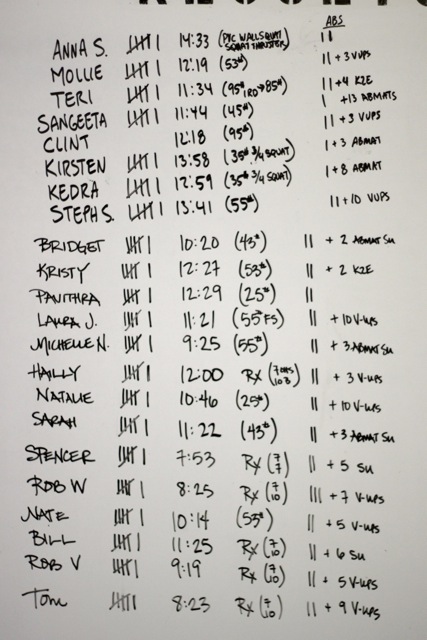 ABS
ANNA S. 𝍸 I 14:33 (PVC WALL SQUAT SQUAT THRUSTER) II
MOLLIE 𝍸 I 12:19 (53#) II + 3 VUPS
TERI 𝍸 I 11:34 (95# 1RD→85#) II + 4 K2E
SANGEETA 𝍸 I 11:44 (45#) I + 13 ABMATS
CLINT 12:18 (95#) II + 3 VUPS
KIRSTEN 𝍸 I 13:58 (35# 3/4 SQUAT) I + 3 ABMAT
KEDRA 𝍸 I 12:59 (35# 3/4 SQUAT) I + 8 ABMAT
STEPH S. 𝍸 I 13:41 (55#) II + 10 VUPS
BRIDGET 𝍸 I 10:20 (43#) II + 2 ABMAT SU
KRISTY 𝍸 I 12:27 (53#) II + 2 K2E
PAVITHRA 𝍸 I 12:29 (25#) II
LAURA J. 𝍸 I 11:21 (55# FS) II + 10 V-UPS
MICHELLE N. 𝍸 I 9:25 (55#) II + 3 ABMAT SU
HAILLY 𝍸 I 12:00 RX II + 3 V-UPS
NATALIE 𝍸 I 10:46 (25#) II + 10 V-UPS
SARAH 𝍸 I 11:22 (43#) II + 3 ABMAT SU
SPENCER 𝍸 I 7:53 RX (7/7) II + 5 SU
ROB W 𝍸 I 8:25 RX (7/10) III + 7 V-UPS
NATE 𝍸 I 10:14 (53#) II + 5 V-UPS
BILL 𝍸 I 11:25 RX (7/10) II + 6 SU
ROB V 𝍸 I 9:19 RX (7/10) II + 5 V-UPS
Tom 𝍸 I 8:23 RX (7/10) II + 9 V-UPS